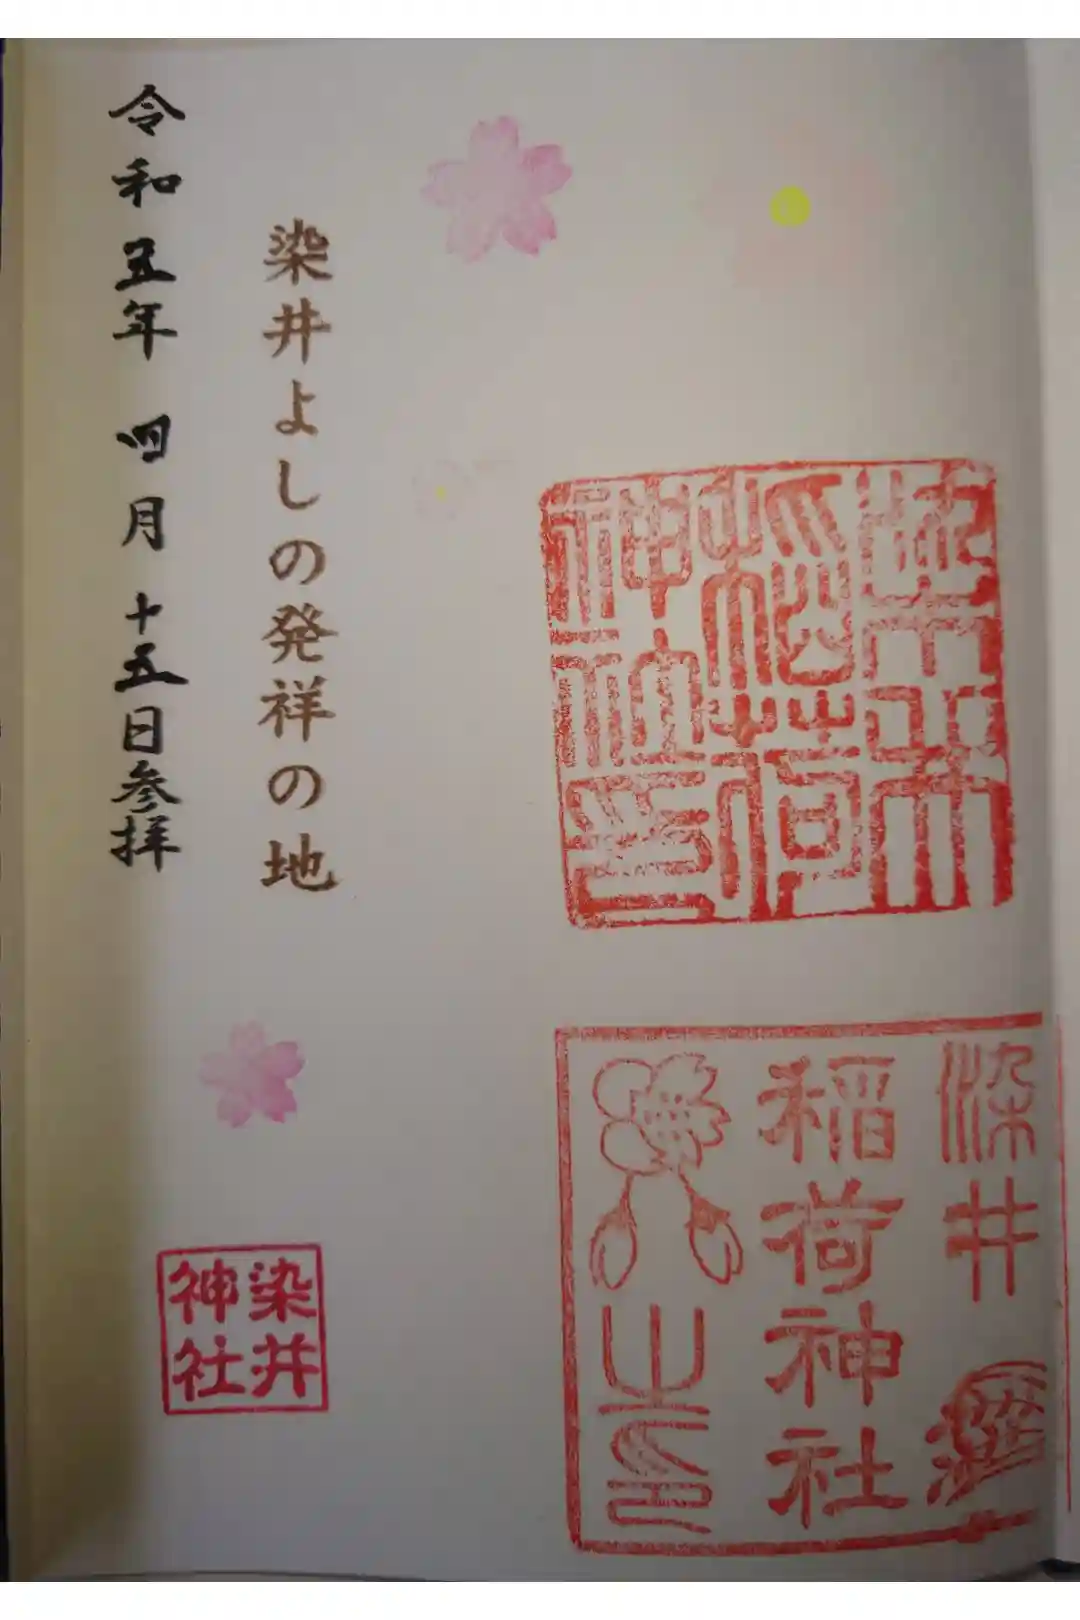 稲荷
神社印
染井
稲荷神社
之印
染井よしの発祥の地
令和五年四月十五日参拝
染井
神社